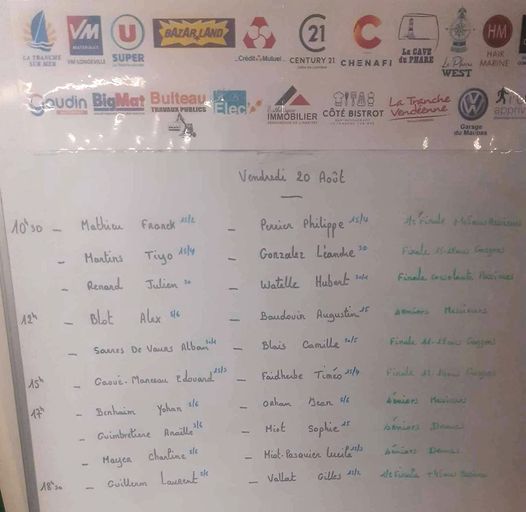 LA TRANCHE SUR MER
VM MATERIAUX
VM LONGEVILLE
U SUPER
BAZARLAND
Crédit Mutuel
C21
CENTURY 21
CHENAFI
La CAVE du PHARE
Le Phare WEST
HM
HAIR MARINE
Gaudin
BigMat
Bulteau
TRAVAUX PUBLICS
Elec
IMMOBILIER
CÔTÉ BISTROT
La Tranche Vendéenne
Garage du Maupas
Vendredi 20 Août
10h30 - Mathieu Franck 15/2 - Perrier Philippe 15/4 1/2 Finale
- Martins Tiyo 15/4 - Gonzalez Léandre 30 Finale
Renard Julien 30 - Watelle Hubert Finale Consolante Messieurs
12h - Blot Alex 5/6 - Baudouin Augustin 15 séniors Messieurs
- Alban - Blais Camille Finale
15h - Edouard 15/3 - Faidherbe Timéo 15/4 Finale
17h - Benhaim Yohan 5/6 - Jean séniors Messieurs
- Guimbretière Anaëlle - Miot Sophie 15 séniors Dames
- Mayer Charline - Miot-Pasquier Lucile séniors Dames
18h30 - Guillerm Laurent - Vallat Gilles 1/2 Finale